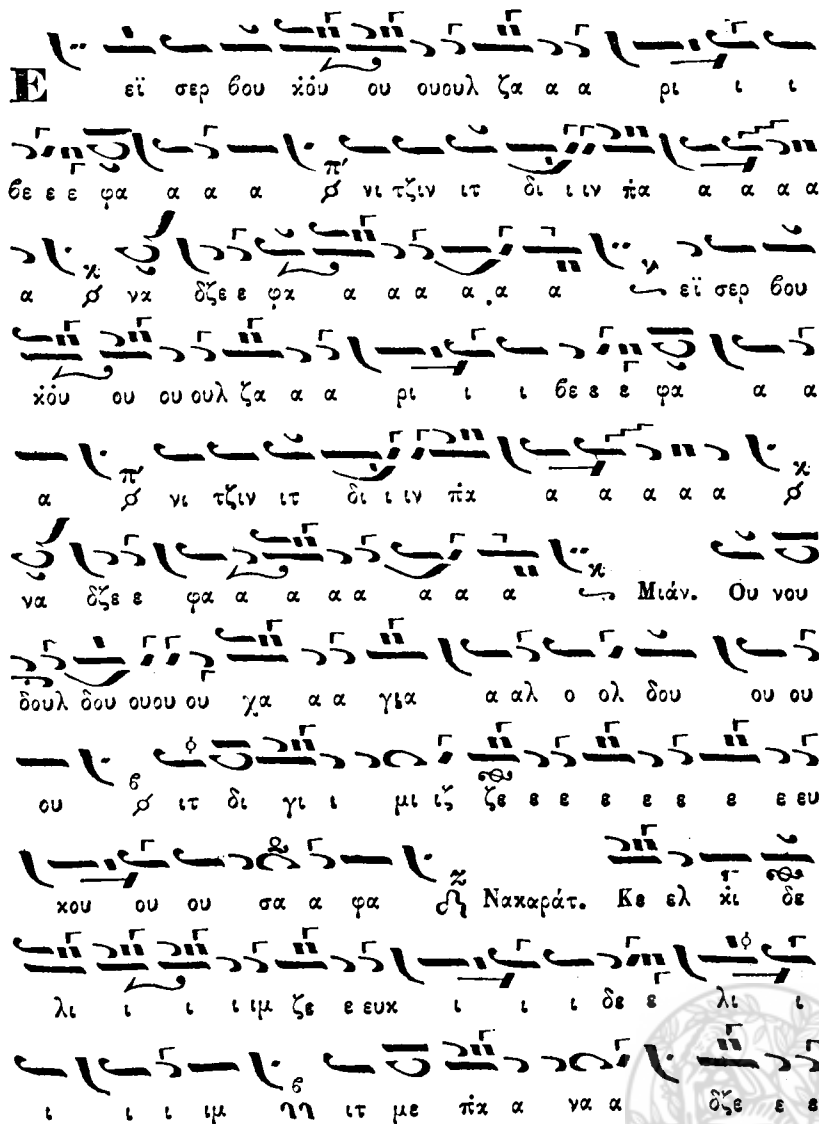 Ε εϊ σερ βου κὁὐ ου ουουλ ζα α α ρι ι ι
βε ε ε φα α α α νι τζιν ιτ δι ι ιν πα α α α α
α να δζε ε φα α α α α α α εϊ σερ βου
κὁὐ ου ου ουλ ζα α α ρι ι ι βε ε ε φα α α
α νι τζιν ιτ δι ι ιν πα α α α α α
να δζε ε φα α α α α α α α Μιάν. Ου νου
δουλ δου ουου ου χα α α για α αλ ο ολ δου ου ου
ου ιτ δι γι ι μι ιζ ζε ε ε ε ε ε ε ε ευ
κου ου ου σα α φα Νακαράτ. Κε ελ κι δε
λι ι ι ι ιμ ζε ε ευκ ι ι ι δε ε λι ι
ι ι ι ιμ ιτ με πα α να α δζε ε ε